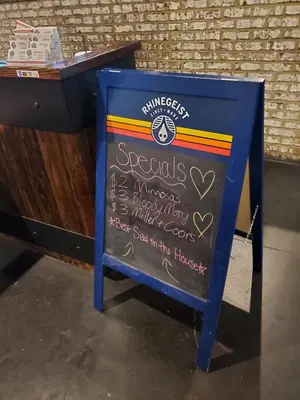 RHINEGEIST
Specials
$2 Mimosas
$3 Bloody Mary
$3 Miller + Coors
*Best Seat in the House*